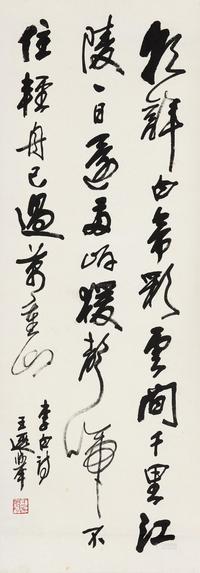 朝辭白帝彩雲間千里江
陵一日還兩岸猨聲啼不
住輕舟已過萬重山
李白詩
王遐舉